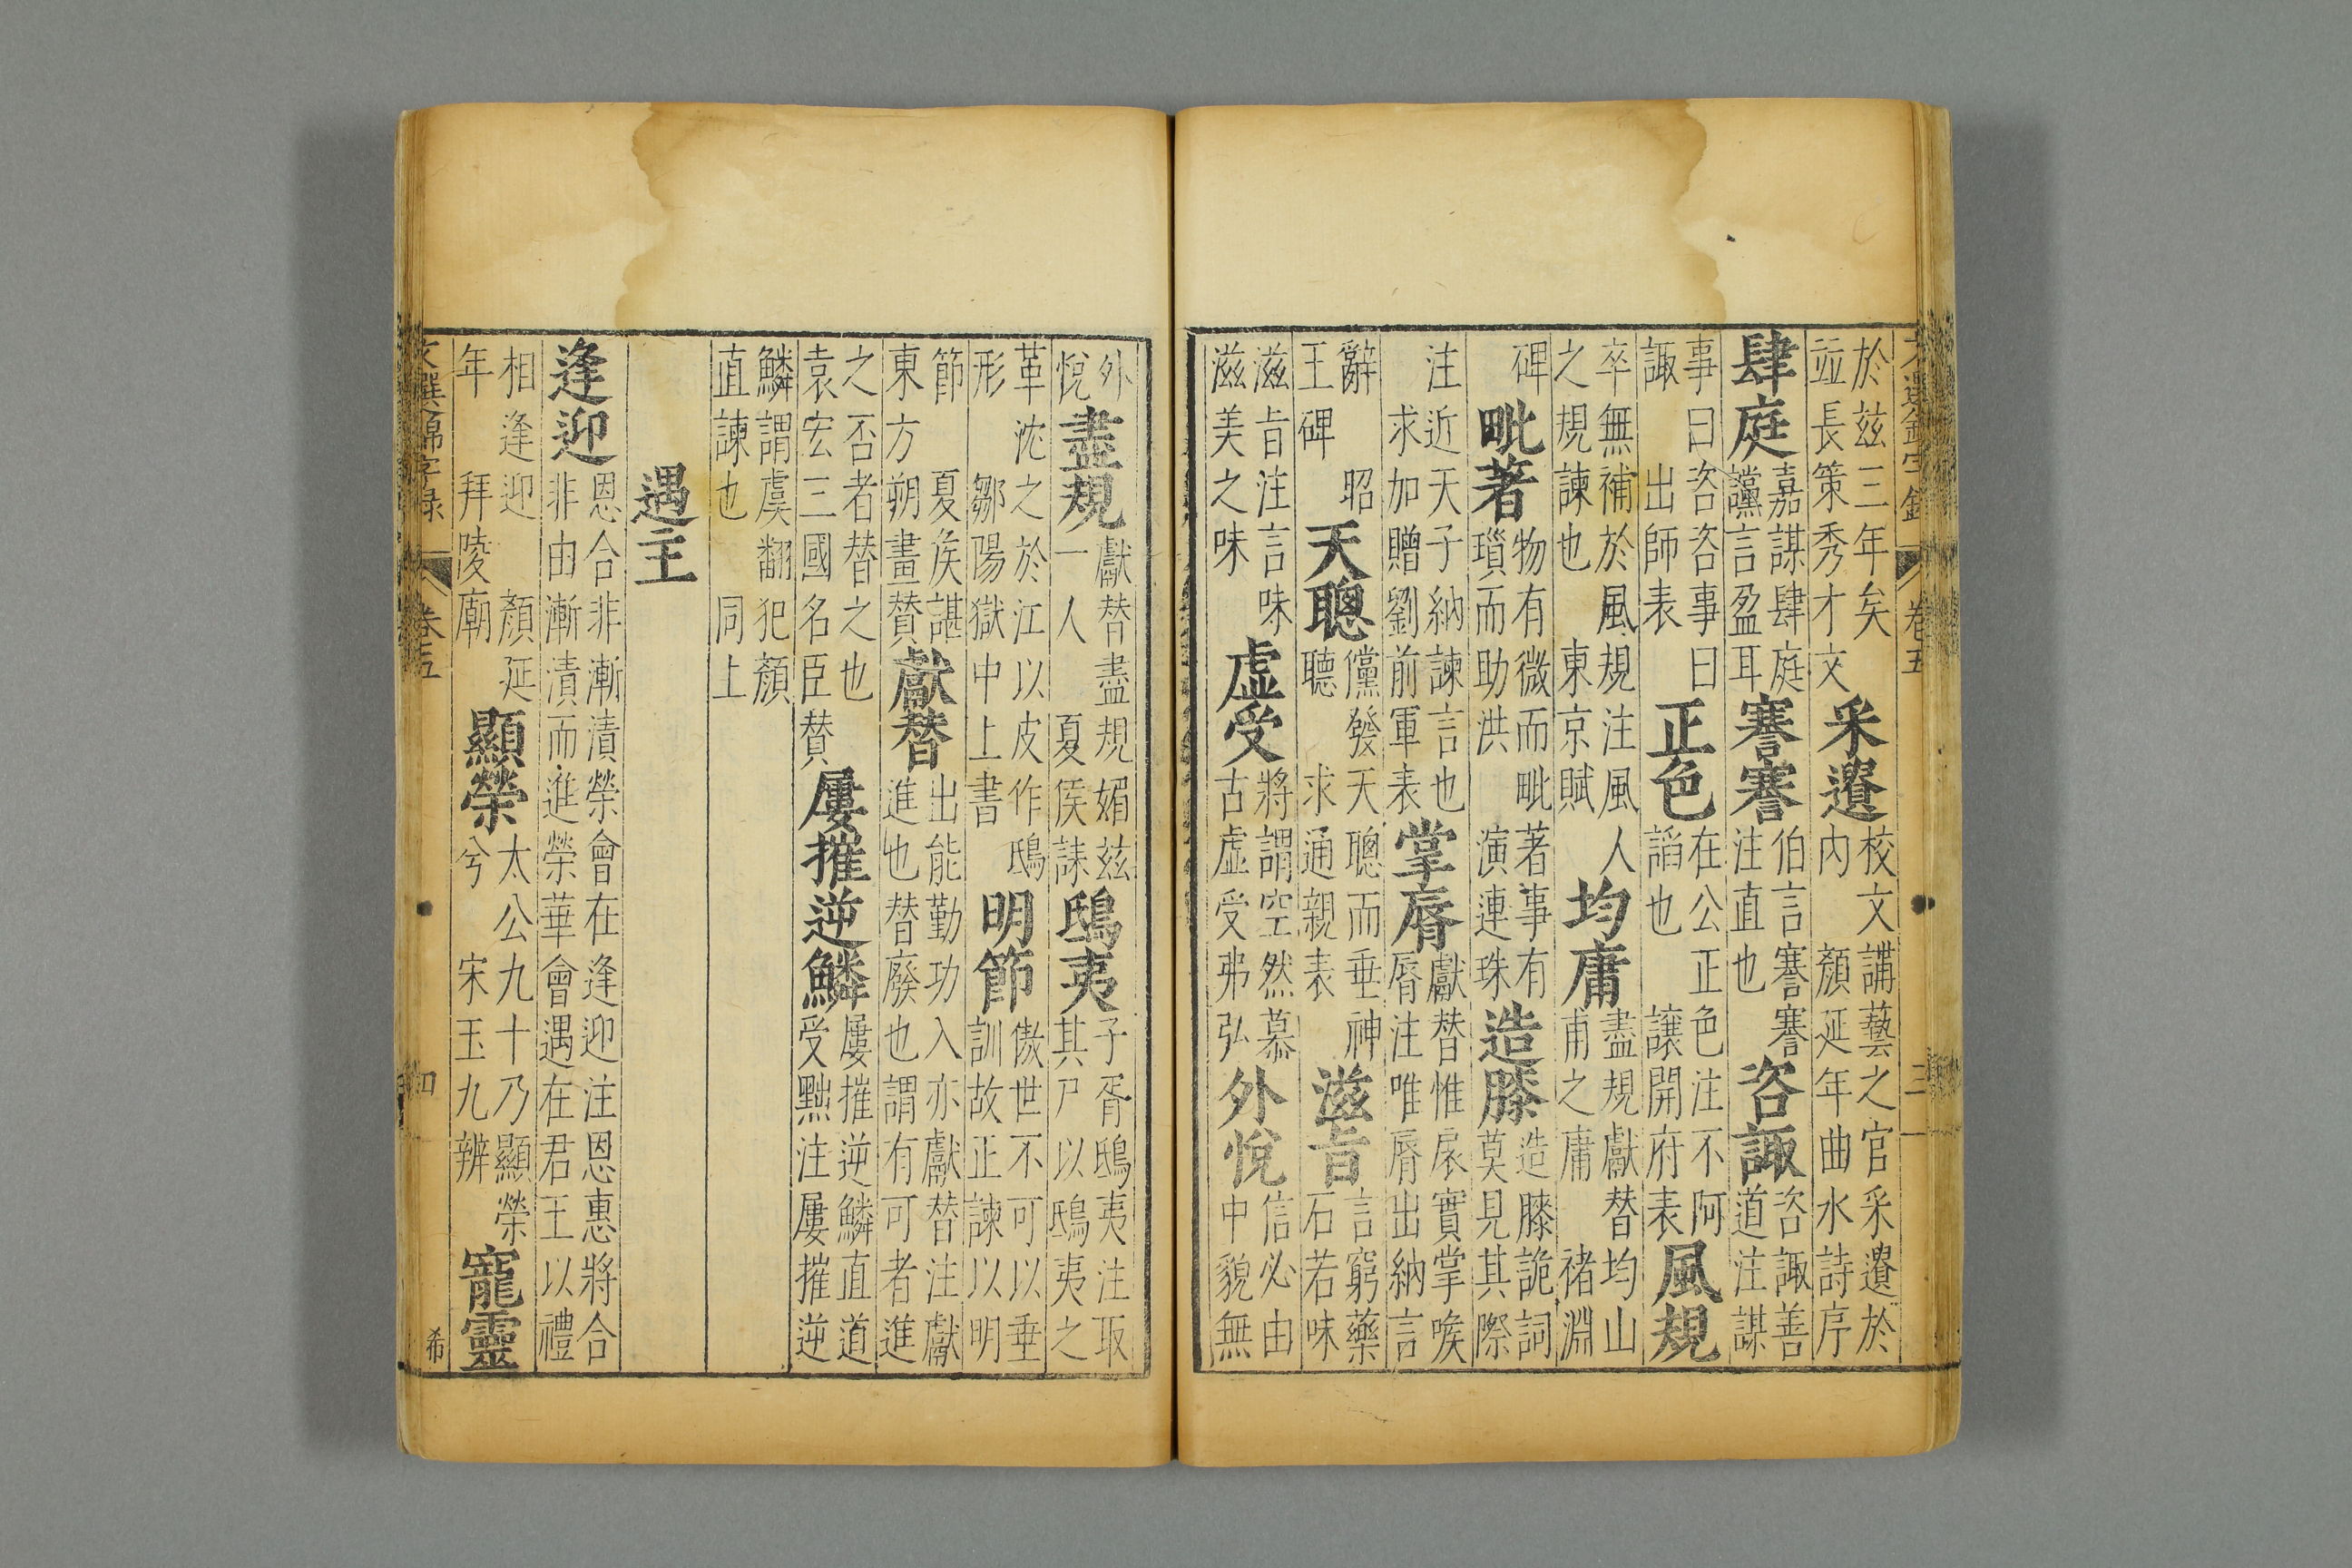 文選錦字録 卷五 三
於兹三年矣 采遺 校文講藝之官采遺於
竝長策秀才文 内 顔延年曲水詩序
肆庭 嘉謀肆庭 謇謇 伯言謇謇 咨諏 咨諏善
讜言盈耳 注直也 道注謀
事曰咨咨事曰 正色 在公正色注不阿 風規
諏 出師表 謟也 讓開府表
卒無補於風規注風人 均庸 盡規獻替均山
之規諫也 東京賦 甫之庸 褚淵
碑 毗著 物有微而毗著事有 造膝 造膝詭詞
瑣而助洪 演連珠 莫見其際
注近天子納諫言也 掌脣 獻替惟扆實掌喉
求加贈劉前軍表 脣注唯脣出納言
辭 昭 天聰 儻發天聰而垂神 滋旨 言窮藥
王碑 聽 求通親表 石若味
滋旨注言味 虚受 將謂空然慕 外悅 信必由
滋美之味 古虚受弗弘 中貌無
外 盡規 獻替盡規媚兹 鴟夷 子胥鴟夷注取
悅 一人 夏侯誄 其尸以鴟夷之
革沈之於江以皮作鴟 明節 傲世不可以垂
形 鄒陽獄中上書 訓故正諫以明
節 夏侯諶 獻替 出能勤功入亦獻替注獻
東方朔畫贊 進也替廢也謂有可者進
之否者替之也 屢摧逆鱗 屢摧逆鱗直道
袁宏三國名臣贊 受黜注屢摧逆
鱗謂虞翻犯顔
直諫也 同上
遇主
逢迎 恩合非漸漬榮會在逢迎注恩惠將合
非由漸漬而進榮華會遇在君王以禮
相逢迎 顔延 顯榮 太公九十乃顯榮 寵靈
年 拜陵廟 兮 宋玉九辨
文選錦字録 卷五 四 希